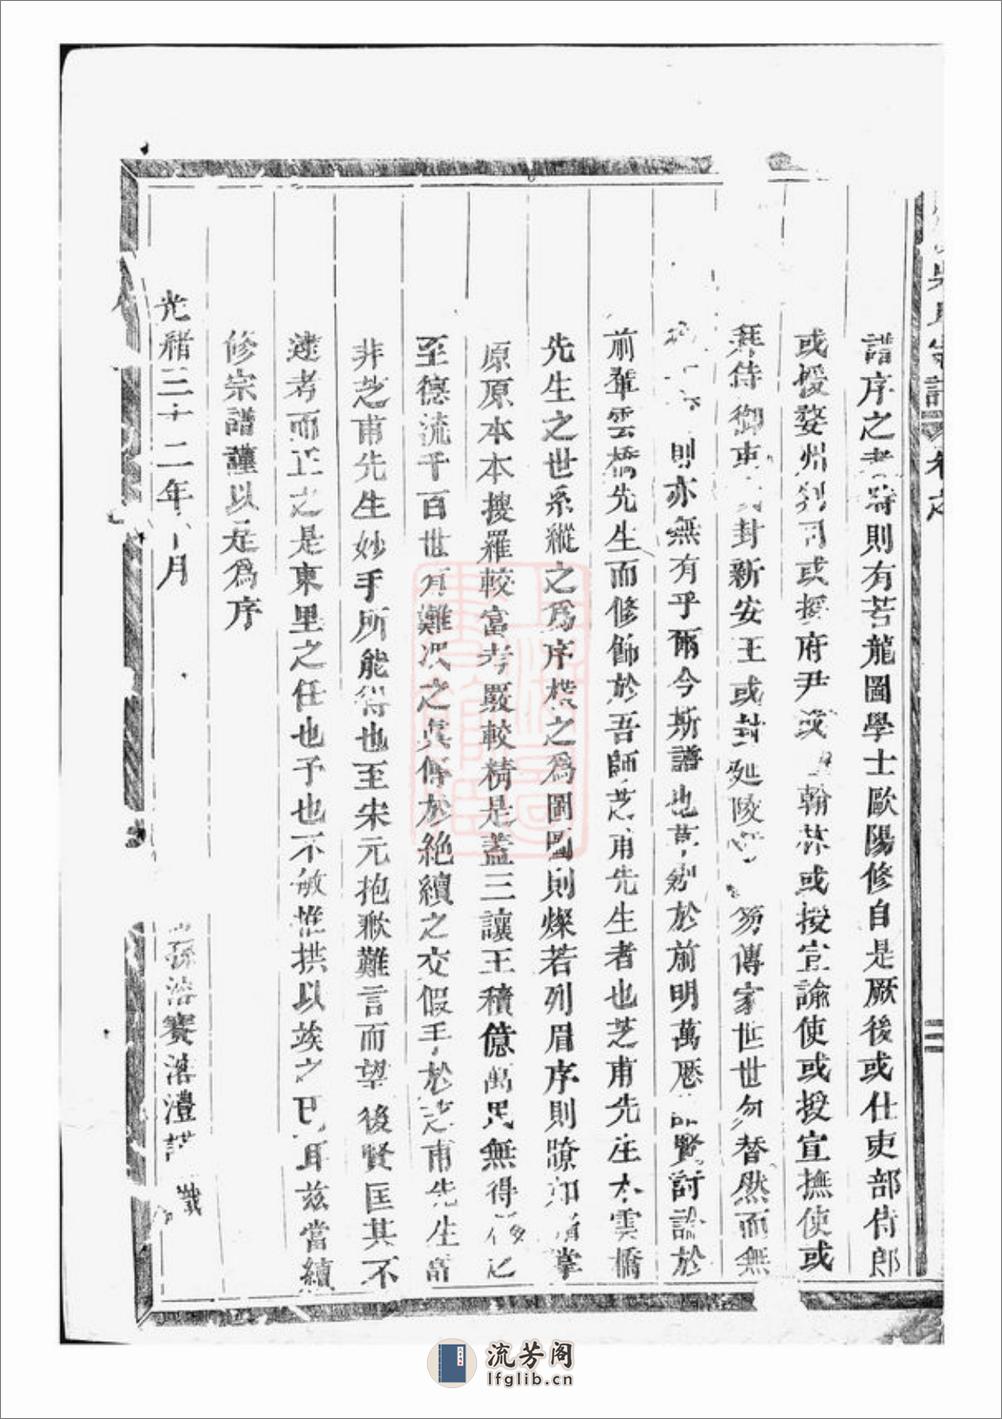 吳氏宗譜 卷之
譜序之者時則有若龍圖學士歐陽修自是厥後或仕吏部侍郎
或授婺州判司或授府尹或翰林或授宣諭使或授宣撫使或
拜侍御史封新安王或封延陵傳家世世勿替然而無
則亦無有乎爾今斯譜也草創於前明萬歷賢討論於
前輩雲橋先生而修飾於吾師芝甫先生者也芝甫先生本雲橋
先生之世系縱之為序橫之為圖圖則燦若列眉序則瞭如指掌
原原本本搜羅較富考嚴較精是蓋三讓王積億萬民無得稱之
至德流千百世有難泯之真傳於絕續之交假手於芝甫先生豈
非芝甫先生妙手所能得也至宋元抱歉難言而望後賢匡其不
逮考而正之是東里之任也予也不敏惟拱以竢之已耳茲當續
修宗譜謹以是為序
光緒三十二年月
孫澄
流芳阁
lfglib.cn